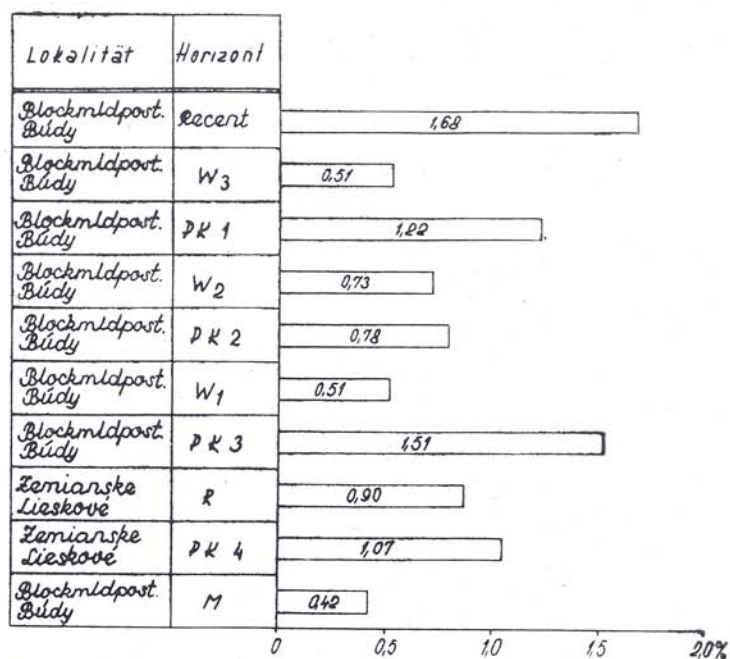 Lokalität Horizont
Blockmldpost.
Búdy
Recent
1,68
Blockmldpost.
Búdy
W3
0,51
Blockmldpost.
Búdy
PK 1
1,22
Blockmldpost.
Búdy
W2
0,73
Blockmldpost.
Búdy
PK 2
0,78
Blockmldpost.
Búdy
W1
0,51
Blockmldpost.
Búdy
PK 3
1,51
Zemianske
Lieskové
R
0,90
Zemianske
Lieskové
PK 4
1,07
Blockmldpost.
Búdy
M
0,42
0 0,5 1,0 1,5 2,0%